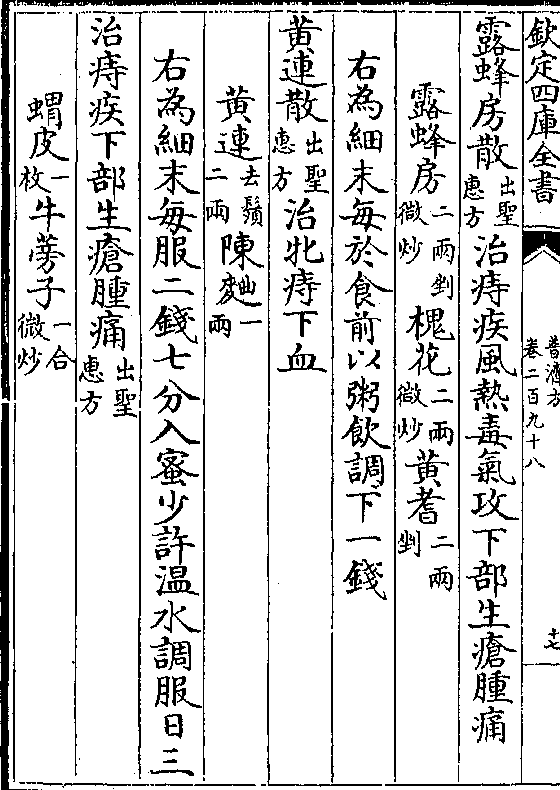 欽定四庫全書
普濟方
卷二百九十八
十七
露蜂房散出聖惠方治痔疾風熱毒氣攻下部生瘡腫痛
露蜂房二兩剉微炒槐花二兩微炒黄耆二兩剉
右為細末每於食前以粥飲調下一錢
黄連散出聖惠方治牝痔下血
黄連去鬚二兩陳麴一兩
右為細末每服二錢七分入蜜少許温水調服日三
治痔疾下部生瘡腫痛出聖惠方
蝟皮一枚牛蒡子一合微炒